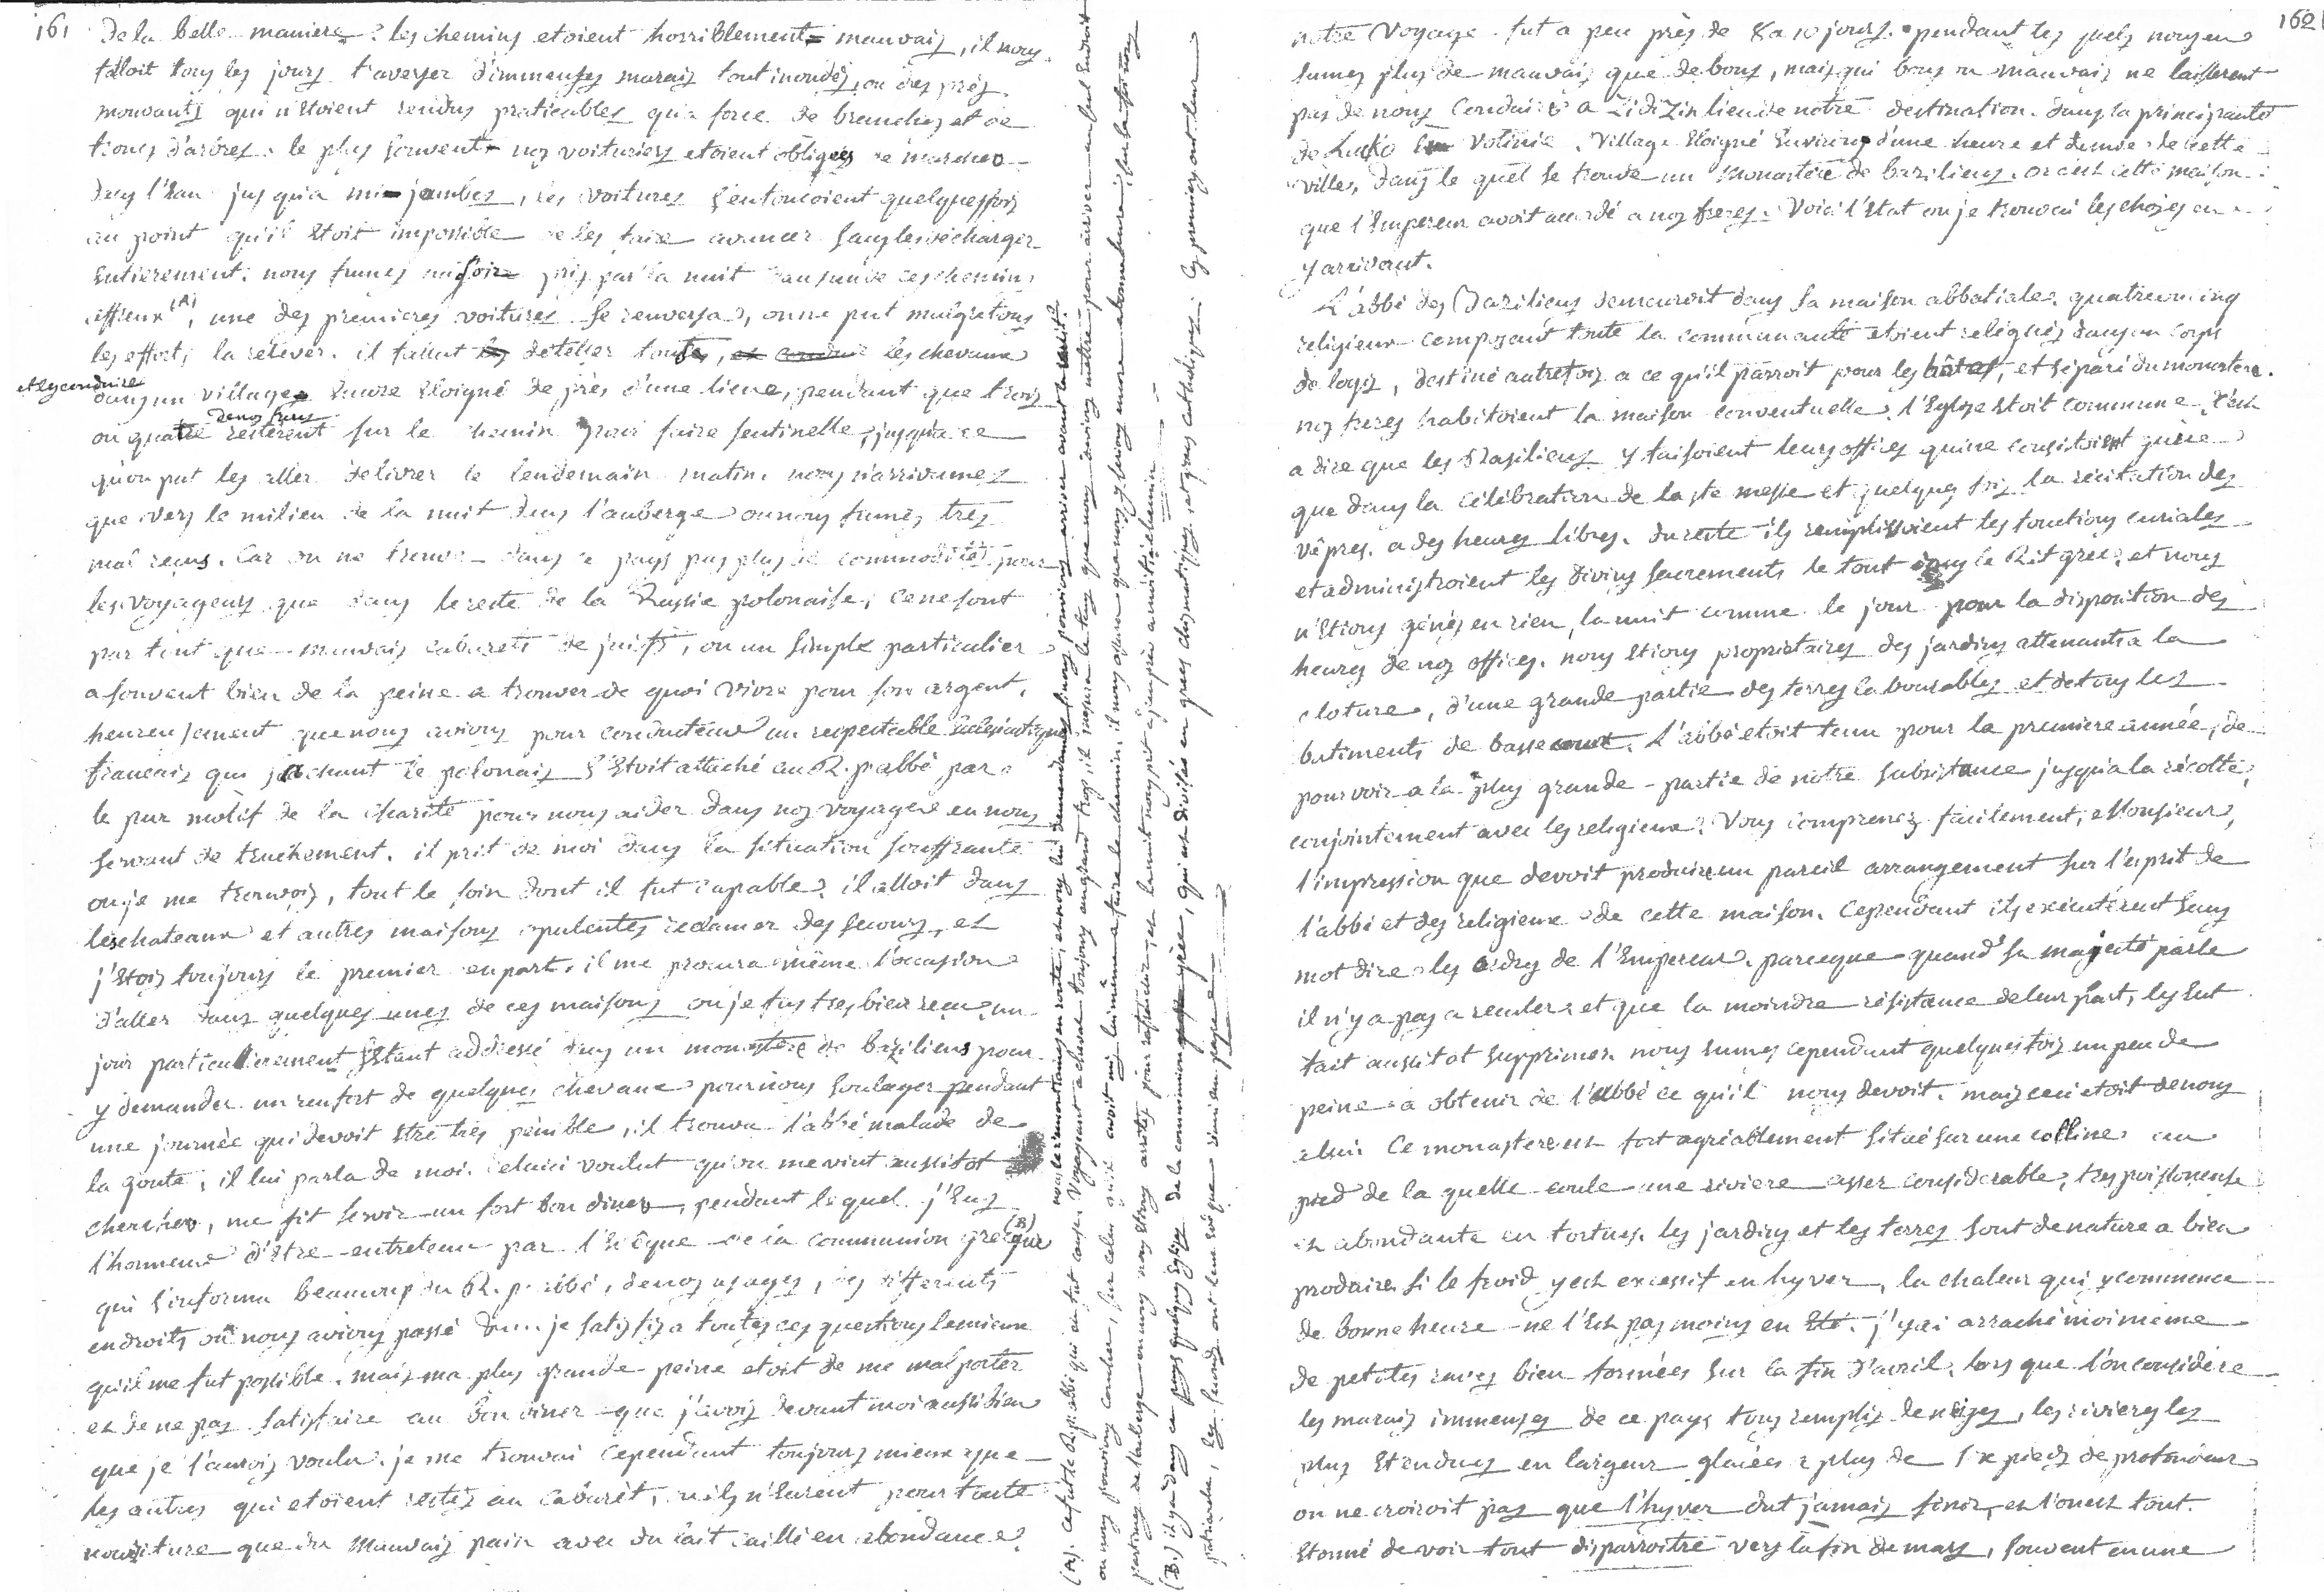 161
de la belle maniere. les chemins etoient horriblement mauvais, il nous
faloit tous les jours traverser d'immenses marais tout inondés, ou des près
mouvants qui n'étoient rendus praticables qu'a force de branches et de
troncs d'arbres. le plus souvent nos voituriers etoient obligés de marcher
dans l'Eau jusqu'a mi-jambes, les voitures s'enfoncoient quelquesfois
au point qu'il étoit impossible de les faire avancer sans les décharger
Entierement. nous fumes un soir pris par la nuit dans un de ces chemins
affreux (A), une des premieres voitures se renversa, on ne put malgré tous
les efforts la relever. il fallut deteller toutes, les chevaux
et les conduire
dans un village Encore Eloigné de près d'une lieue, pendant que trois
de nos freres
ou quatre resterent sur le chemin pour faire sentinelle, jusqu'a ce
qu'on put les aller délivrer le lendemain matin. nous n'arrivames
que vers le milieu de la nuit dans l'auberge ou nous fumes très
mal reçus. Car on ne trouve dans ce pays pas plus de commodités pour
les voyageurs que dans le reste de la Russie polonaise, ce ne sont
par tout que mauvais cabarets de juifs, ou un simple particulier
a souvent bien de la peine a trouver de quoi vivre pour son argent.
heureusement que nous avions pour conducteur un respectable Eclesiastique
francais qui sachant le polonais s'Etoit attaché au R. p. abbé par
le pur motif de la charité pour nous aider dans nos voyages en nous
servant de truchement. il prit de moi dans la situation souffrante
ou je me trouvois, tout le soin dont il fut capable. il alloit dans
les chateaux et autres maisons opulentes réclamer des secours, et
j'Etois toujours le premier en part. il me procura même l'occasion
d'aller dans quelques unes de ces maisons ou je fus tres bien reçu. un
jour particulierement s'Etant addressé dans un monastere de baziliens pour
y demander un renfort de quelques chevaux pour nous soulager pendant
une journée qui devoit Etre très pénible, il trouva l'abbé malade de
la goute, il lui parla de moi. Celuici voulut qu'on me vint aussitot
chercher, me fit servir un fort bon diner, pendant lequel j'Eus
l'honneur d'Etre entretenu par l'Evêque de la communion grecque (B)
qui s'informa beaucoup du R. p. abbé, de nos usages, des differents
endroits où nous avions passé je satisfis a toutes ces questions le mieux
qu'il me fut possible. mais ma plus grande peine etoit de me mal porter
et de ne pas satisfaire au bon diner que j'avois devant moi aussi bien
que je l'aurois voulu. je me trouvai cependant toujours mieux que
les autres qui etoient restés au Cabaret, ils n'Eurent pour toute
nourriture que du mauvais pain avec du lait caillé en abondance.
(A). Ce fut le R. p. abbé qui en fut cause. Voyageant a cheval toujours au grand trot, il
nous le rencontrames en route, et nous lui demandames si nous pouvions arriver avant la nuit.
ou nous pouvions coucher, sur celui qu'il avoit mis lui même a faire le chemin, il nous assura que nous
partimes de l'auberge ou nous nous Etions arretés pour rafraichir, et la nuit nous prit a peu près a moitié chemin
(B.) il y a dans ce pays quelques Evêques de la communion grèce, qui est divisée en grecs chismatiques, et grecs catholiques. les premiers ont leur
patriarche, les seconds ont leur Evêque soumis au pape
162
notre Voyage fut a peu près de 8 a 10 jours. pendant les quels nous en
Eumes plus de mauvais que de bons, mais qui bons ou mauvais ne laisserent
pas de nous Conduire a Zidizin lieu de notre destination. dans la principauté
de Lucko En Volinie. Village Eloigné Environ d'une heure et demie de cette
ville, dans le quel se trouve un Monastère de baziliens. or c'est cette maison
que l'Empereur avoit accordé a nos freres. Voici l'Etat ou je trouvai les choses en
y arrivant.
L'abbé des Baziliens demeuroit dans sa maison abbatiale. quatre ou cinq
religieux composant toute la communauté etoient relegués dans un corps
de logis, destiné autrefois a ce qu'il parroit pour les hôtes, et séparé du monastere.
nos freres habitoient la maison conventuelle. l'Eglise Etoit commune c'est
a dire que les Basiliens y faisoient leurs offices qui ne consistoient guère
que dans la célébration de la ste messe et quelques fois la récitation des
vêpres. a des heures libres. du reste ils remplissoient les fonctions curiales
et administroient les Divins sacrements le tout dans le Rit grec. et nous
n'Etions génés en rien, la nuit comme le jour pour la disposition des
heures de nos offices. nous Etions propriétaires des jardins attenants a la
cloture, d'une grande partie des terres labourables et de tous les
batiments de basse cour. L'abbé etoit tenu pour la premiere année, de
pourvoir a la plus grande partie de notre subsistance jusqu'a la récolte,
conjointement avec les religieux. Vous comprenez facilement, Monsieur,
l'impression que devoit produire un pareil arrangement sur l'esprit de
l'abbé et des religieux de cette maison. Cependant ils exécutérent sans
mot dire les ordres de l'Empereur. parceque quand sa majesté parle
il n'y a pas a reculer. et que la moindre résistance de leur part, les Eut
fait aussitot supprimer. nous Eumes cependant quelquesfois un peu de
peine a obtenir de l'abbé ce qu'il nous devoit. mais ceci etoit de nous
a lui. Ce monastere est fort agréablement situé sur une colline au
pied de la quelle coule une riviere assez considerable, tres poissoneuse
et abondante en tortues. les jardins et les terres sont de nature a bien
produire. Si le froid y est excessif en hyver, la chaleur qui y commence
de bonne heure ne l'Est pas moins en Eté. j'y ai arraché moi même
de petites raves bien formées sur la fin d'avril. lors que l'on considére
les marais immenses de ce pays tous remplis de neiges, les rivieres les
plus Etendues en largeur glacées a plus de six pieds de profondeur
on ne croiroit pas que l'hyver dut jamais finir, et l'on est tout
Etonné de voir tout disparroitre vers la fin de mars, souvent en une